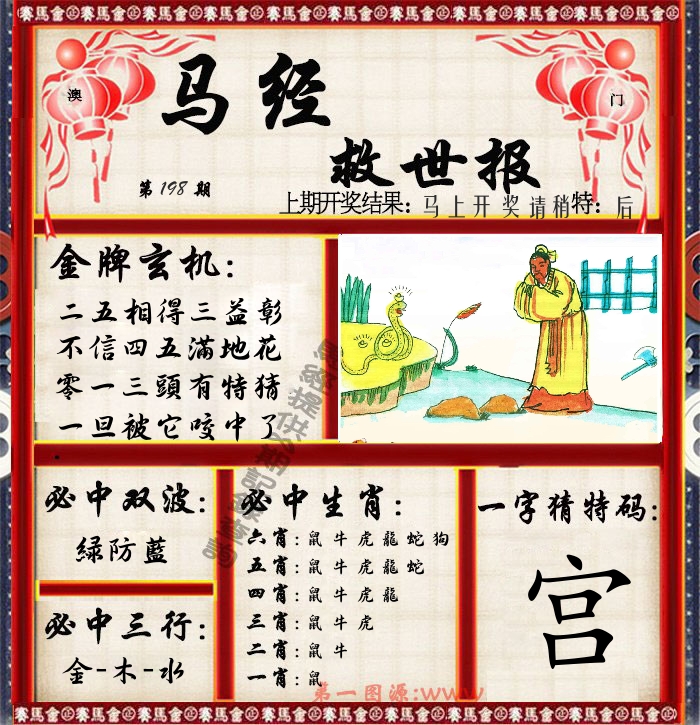 賽馬會賽馬會賽馬會賽馬會賽馬會賽馬會賽馬會
澳
门
马经
救世报
第 198 期
上期开奖结果：马上开奖请稍特：后
金牌玄机：
二五相得三益彰
不信四五滿地花
零一三頭有特猜
一旦被它咬中了
必中双波：
緑防藍
必中三行：
金-木-水
必中生肖：
六肖：鼠牛虎龍蛇狗
五肖：鼠牛虎龍蛇
四肖：鼠牛虎龍
三肖：鼠牛虎
二肖：鼠牛
一肖：鼠
一字猜特码：
宫
第一图源:www